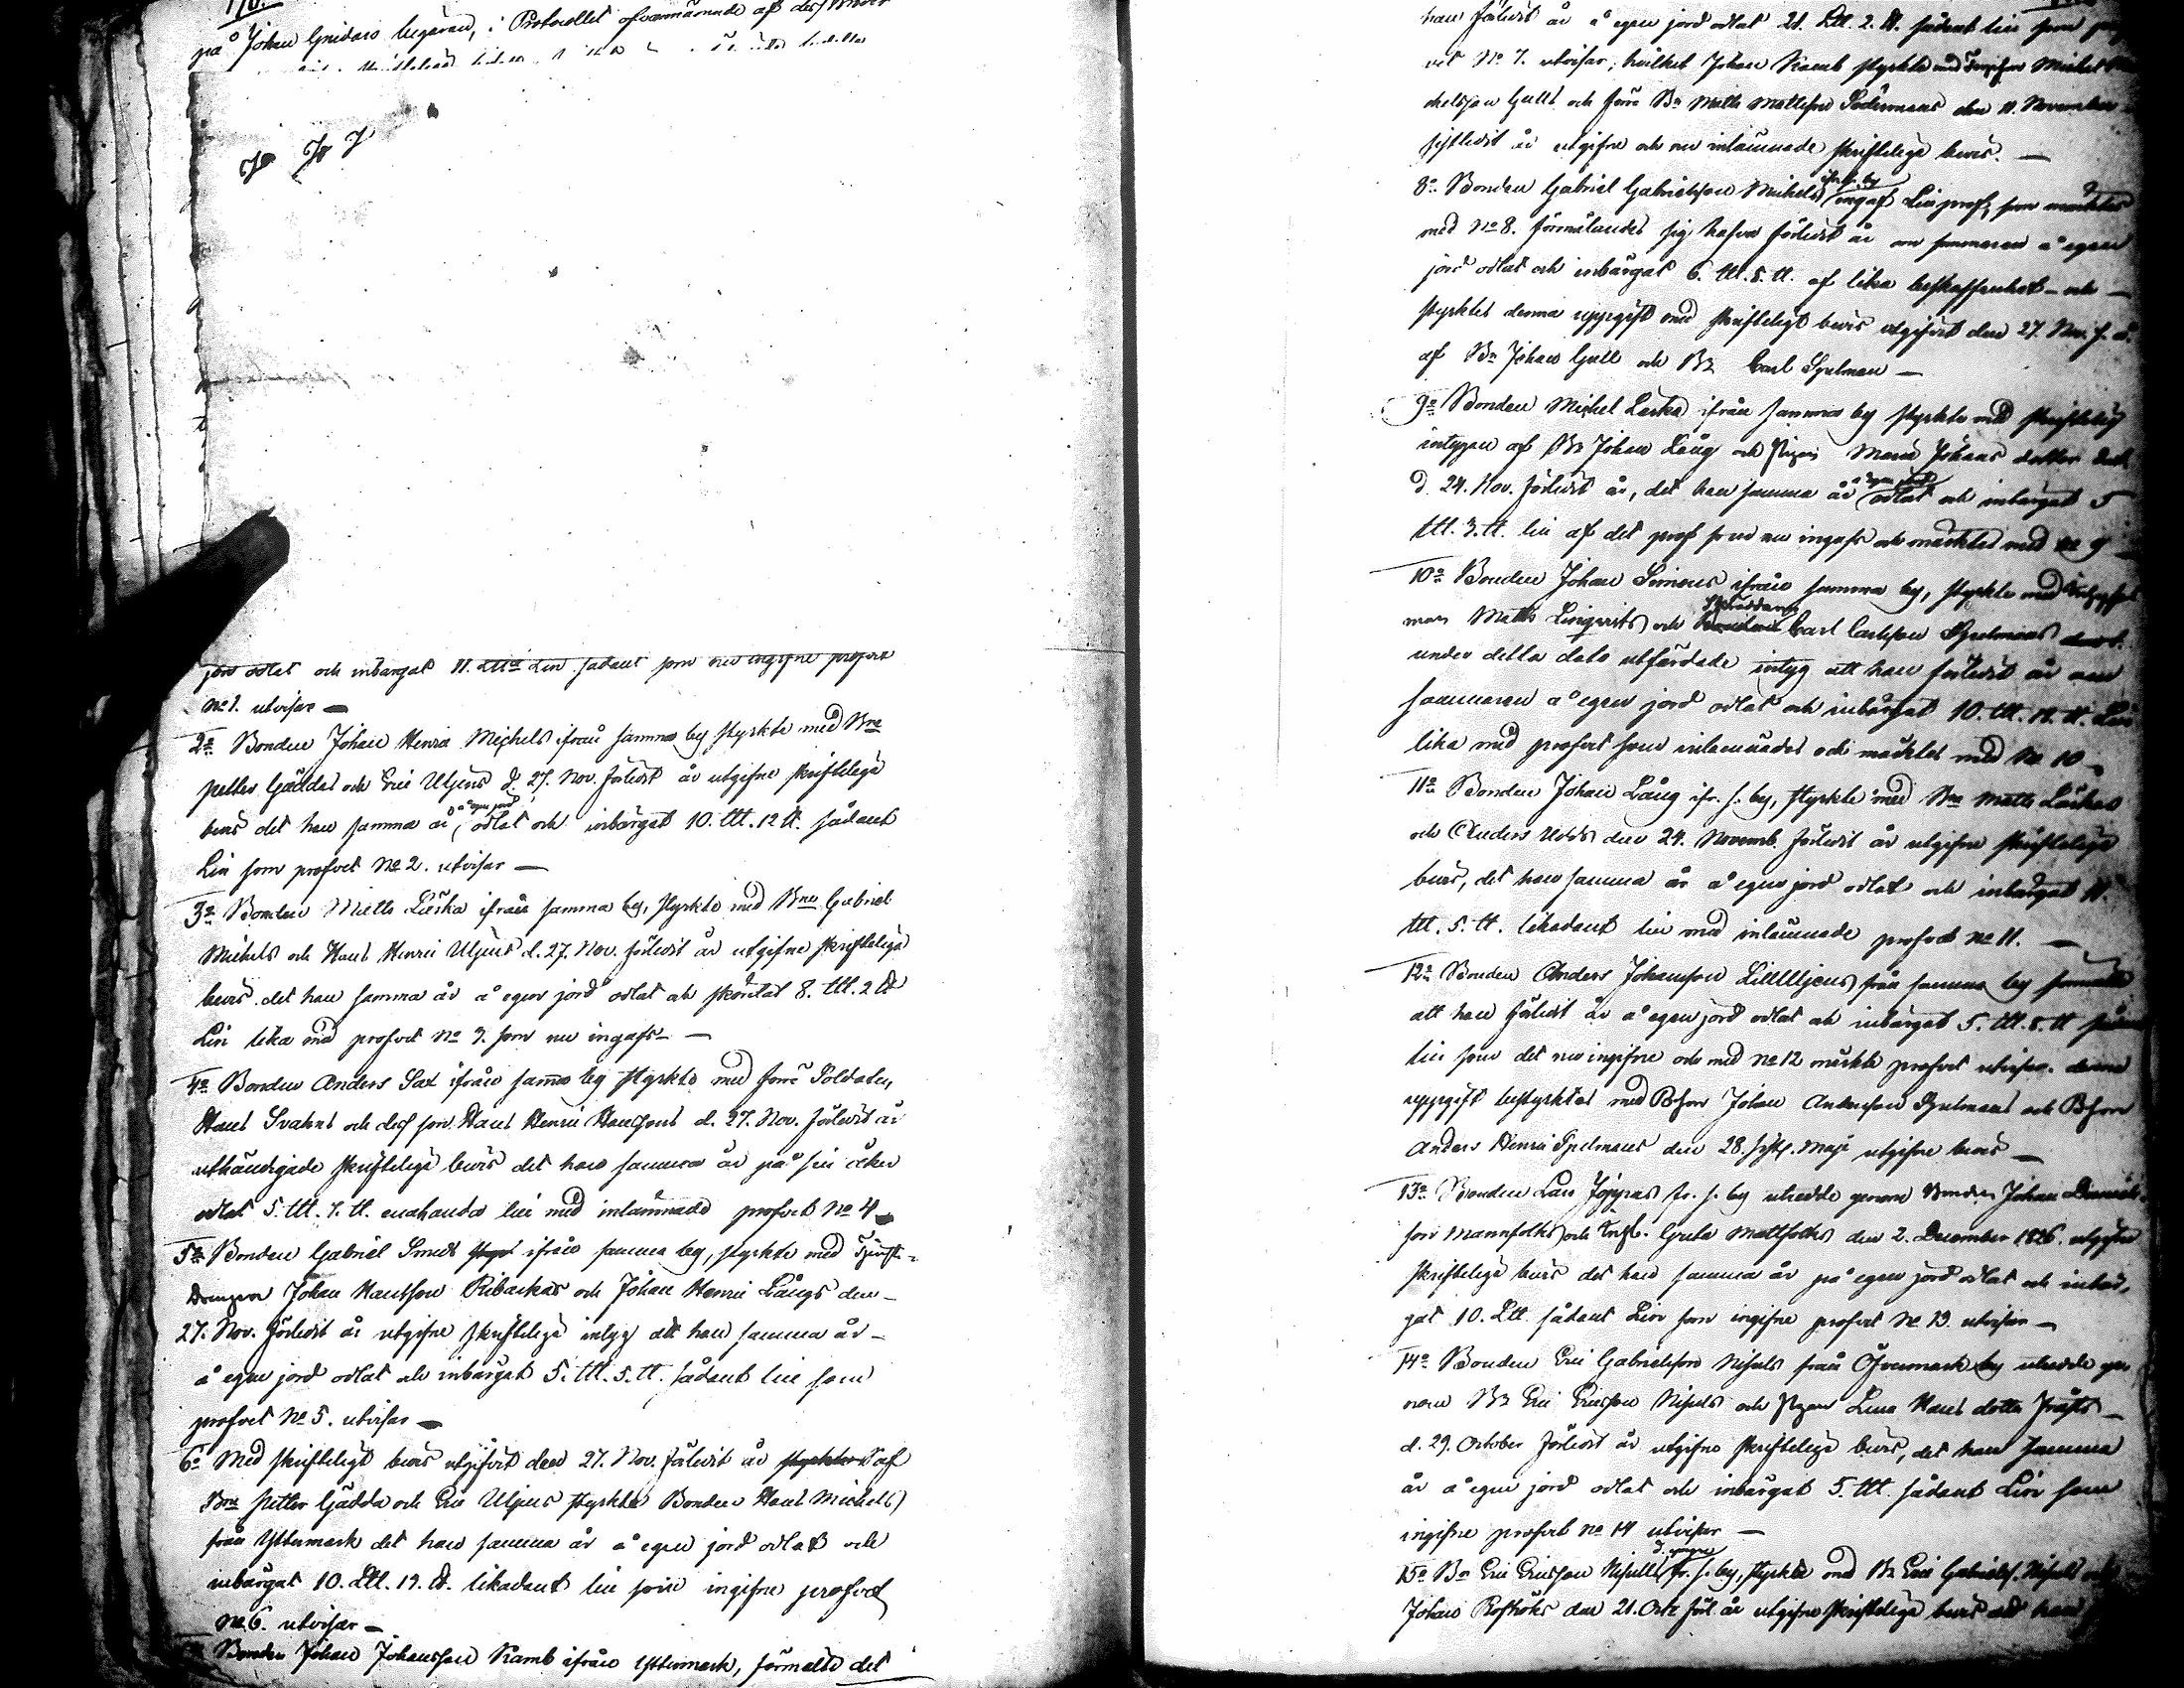 170.
på Johan Gnidars begäran, i Protocollet ofvannämnde af dess
jord odlat och inbärgat 11. Lisp. Lin sådant som nu ingifne profvet
No 1. utvisar —
2o Bonden Johan Henric Michels ifrån samma by styrkte med Bne
petter Gäddas och Eric Uljens d. 27. Nov. förledit år utgifne skriftelige
bevis det han samma år, å egen jord odlat och inbärgat 10. ttl. 12 tt. sådant
Lin som profvet No 2. utvisar —
3o Bonden Matts Läska ifrån samma by, styrkte med Bne Gabriel
Michels och Hans Henric Uljens d. 27. Nov. förledit år utgifne skriftelige
bevis det han samma år å egen jord odlat och skördat 8. ttl. 2 tt
Lin lika med profvet No 3. som nu ingafs —
4o Bonden Anders Sax ifrån samma by styrkte med förre Soldaten,
Hans Svahns och dess son Hans Henric Hanssons d. 27. Nov. förledit år
uthändigade skriftelige bevis det han samma år på sin åker
odlat 5. ttl. 7. tt. enahanda lin med inlämnade profvet No 4 —
5o Bonden Gabriel Smeds ifrån samma by, styrkte med
Johan Hansson Ribackas och Johan Henric Långs den
27. Nov. förledit år utgifne skriftelige intyg att han samma år
å egen jord odlat och inbärgat 5. ttl. 5. tt. sådant lin som
profvet No 5. utvisar —
6o Med skrifteligt bevis utgifvit den 27. Nov. förledit år styrkte af
Bne petter Gädda och Eric Uljens styrkte Bonden Hans Michels
från Yttermark det han samma år å egen jord odlat och
inbärgat 10. Ltt. 19. tt. likadant lin som ingifne profvet
No 6. utvisar —
Bonden Johan Johansson Kamb ifrån Yttermark, förmälte det
han förledit år å egen jord odlat 21. Ltt. 2. tt. sådant lin som
vet No 7. utvisar, hvilket Johan Kamb styrkte med Michel
chelsson Gulls och förre Bn Matts Mattsson Södermans den 11. November
sistledit år utgifne och nu inlämnade skriftelige bevis. —
8o Bonden Gabriel Gabrielsson Michels ifr. s. by ingaf Linprof, som märktes
med No 8. förmälandes sig hafva förledit år om sommaren å egen
jord odlat och inbärgat 6. ttl. 5. tt. af lika beskaffenhet — och —
styrktes denna uppgift med skrifteligt bevis utgifvit den 27. Nov. f. å.
af Bn Johan Gull och Bn Carl Spelman —
9o Bonden Michel Läska ifrån samma by styrkte med skriftelig
intygan af Bn Johan Lång och pigan Maria Johans dotter
d. 24. Nov. förledit år, det han samma år å egen jord odlat och inbärgat 5
ttl. 3. tt. lin af det prof som nu ingafs och märktes med No 9 —
10o Bonden Johan Simons ifrån samma by, styrkte med
man Matts Lingvists och Skräddaren Carl Carlsson Spelmans
under detta dato utfärdade intyg att han förledit år om
sommaren å egen jord odlat och inbärgat 10. ttl. 14. tt. Lin
lika med profvet som inlämnades och märktes med No 10 —
11o Bonden Johan Lång ifr. s. by, styrkte med Bne Matts Läskas
och Anders Udds den 24. Novemb. förledit år utgifne skriftelige
bevis, det han samma år å egen jord odlat och inbärgat 11.
ttl. 5. tt. likadant lin med inlämnade profvet No 11. —
12o Bonden Anders Johansson Lilluljens från samma by förmälte
att han förledit år å egen jord odlat och inbärgat 5. ttl. 8. tt sådant
lin som det nu ingifne och med No 12 märkte profvet utvisar. denna
uppgift bestyrktes med Bson Johan Andersson Spelmans och Bson
Anders Henric Spelmans den 28. sistl. Maji utgifne bevis —
13o Bonden Lars Jöppas fr. s. by utredde genom Bonden Johan Daniels
son Mannfolks och Enkl. Greta Mattfolks den 2. December 1826. utgifne
skriftelige bevis det han samma år på egen jord odlat och inbär,
gat 10. Ltt. sådant Lin som ingifne profvet No 13. utvisar —
14o Bonden Eric Gabrielsson Nissils från Öfvermark by utredde ge
nom Bn Eric Ericsson Nissils och pigan Lena Hans dotter Frösts
d. 29. October förledit år utgifne skriftelige bevis, det han samma
år å egen jord odlat och inbärgat 5. ttl. sådant Lin som
ingifne profvet No 14 utvisar —
15o Bn Eric Ericsson Nissills d. yngre fr. s. by, styrkte med Bn Eric Gabrielss. Nissils och
Johan Rosthöks den 21. Octr förl. år utgifne skriftelige bevis att han